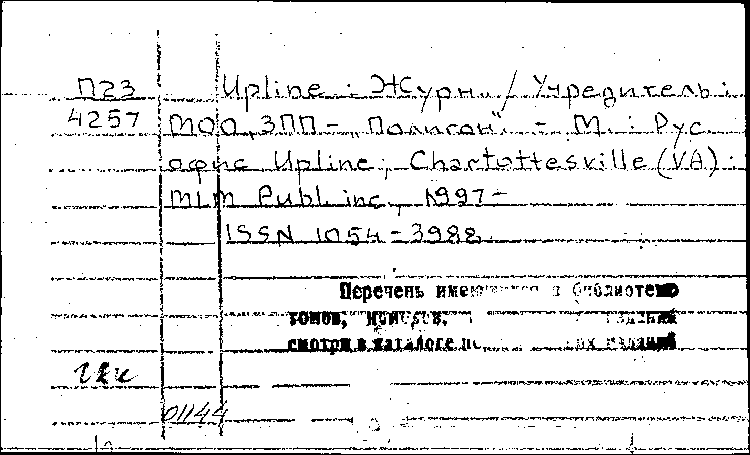 П23 Upline : Журн. / Учредитель :
4257 МОО, ЗПП - „Полигон“. - М. : Рус.
офис Upline ; Chartottesville (VA) :
MLM Publ. inc., 1997-
ISSN 1054-3988.
Перечень в библиотеке
томов, номеров,
смотри в каталоге изданий
01144